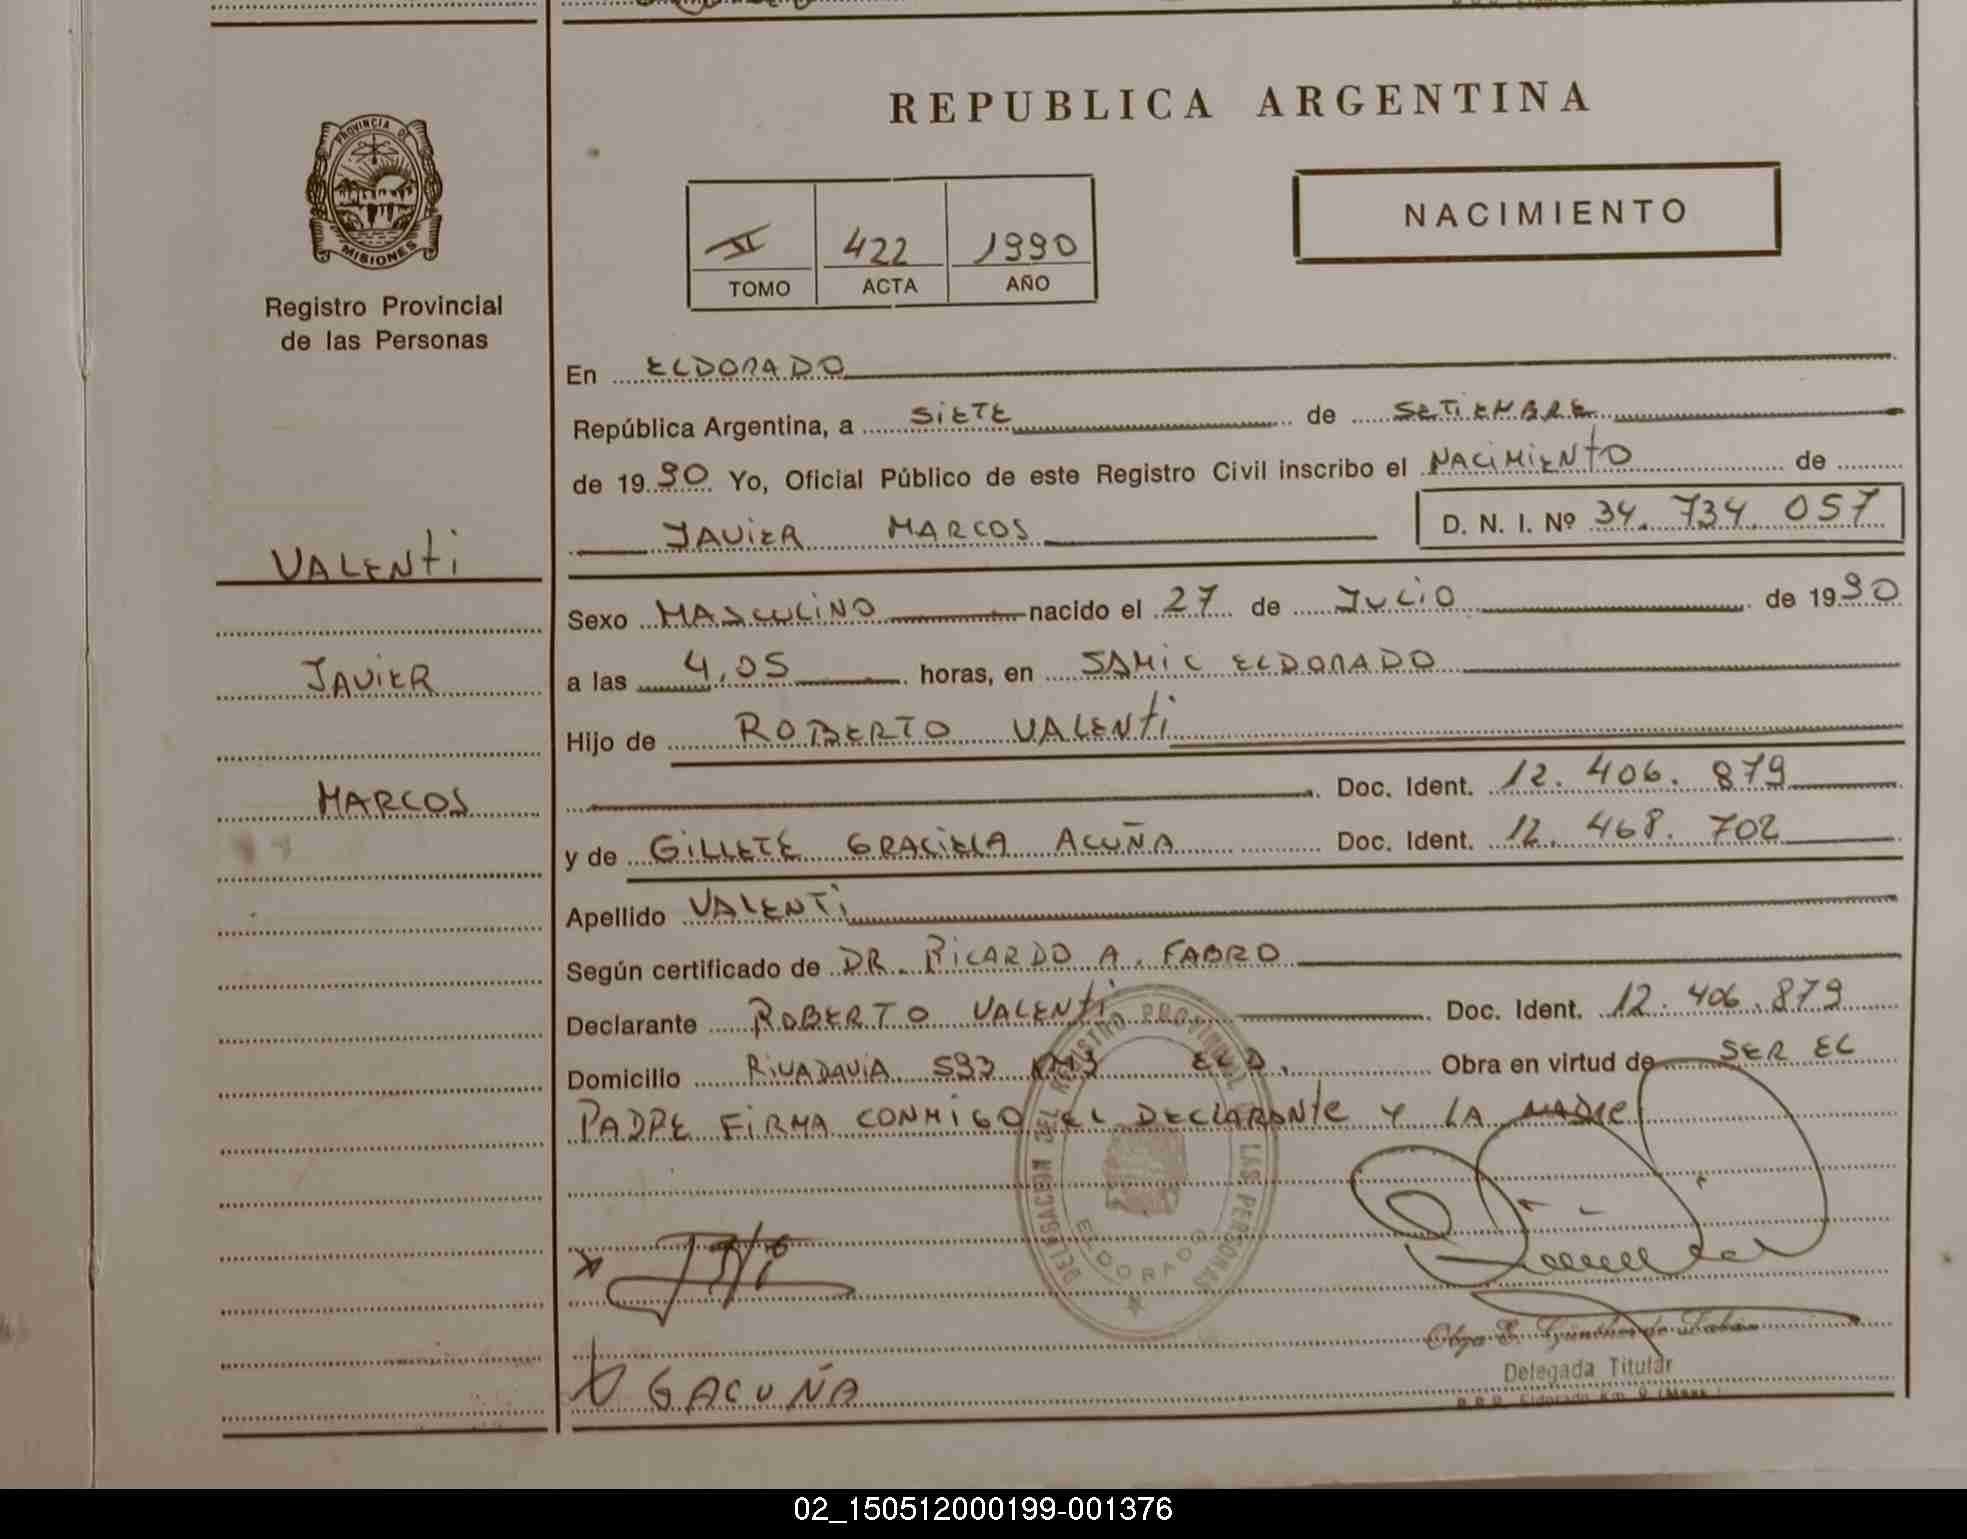 REPUBLICA ARGENTINA
PROVINCIA DE MISIONES
Registro Provincial
de las Personas
II 422 1990
TOMO ACTA AÑO
NACIMIENTO
En ELDORADO
República Argentina, a SIETE de SETIEMBRE
de 1990 Yo, Oficial Público de este Registro Civil inscribo el NACIMIENTO de
JAVIER MARCOS D. N. I. Nº 34. 734. 057
VALENTI
JAVIER
MARCOS
Sexo MASCULINO nacido el 27 de JULIO de 1990
a las 4,05 horas, en SAMIC ELDORADO
Hijo de ROBERTO VALENTI
Doc. Ident. 12. 406. 879
y de GILLETE GRACIELA ACUÑA Doc. Ident. 12. 468. 702
Apellido VALENTI
Según certificado de DR. RICARDO A. FABRO
Declarante ROBERTO VALENTI Doc. Ident. 12. 406. 879
Domicilio RIVADAVIA 593 KM9 ELD. Obra en virtud de SER EL
PADRE FIRMA CONMIGO EL DECLARANTE Y LA MADRE
DELEGACION DEL REGISTRO PROVINCIAL DE LAS PERSONAS
ELDORADO
Olga E. Günther de
Delegada Titular
R.P.P. Eldorado Km. 9
GACUÑA
02_150512000199-001376